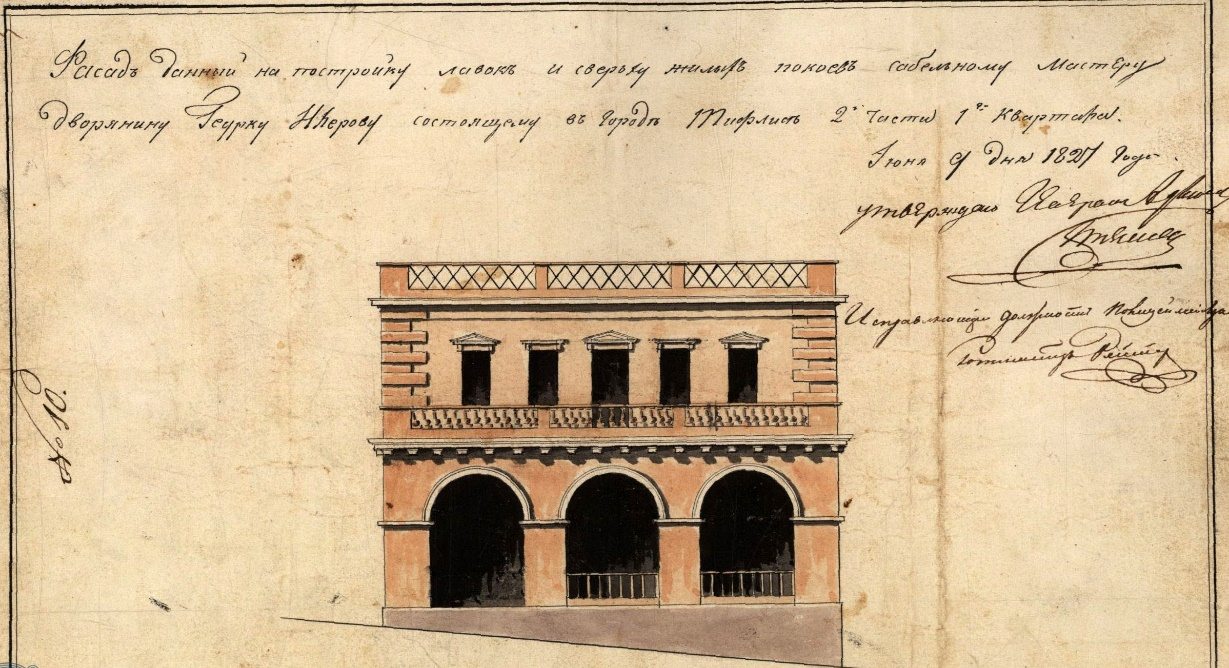 Фасадъ данный на постройку лавокъ и сверьху жилыхъ покоевъ сабельному мастеру
дворянину Геурку состоящему въ городѣ Тифлисѣ 2й части 1го квартала.
Іюня 9 дня 1827 года.
утверждаю
Исправляющій должность полицеймейстера
Ротмистръ
№ 10.